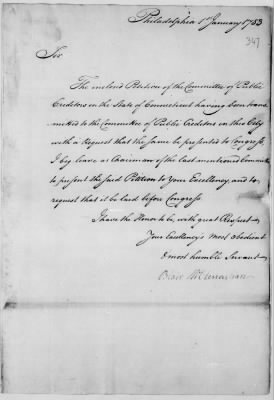 Philadelphia 1st January 1783
347
Sir
The inclosed Petition of the Committee of Public
Creditors in the State of Connecticut having been trans
mitted to the Committee of Public Creditors in this City
with a Request that the same be presented to Congress,
I beg leave as Chairman of the last mentioned Committee
to present the said Petition to Your Excellency, and to
request that it be laid before Congress
I have the Honor to be, with great Respect
Your Excellency's most obedient
& most humble Servant
Blair McClenachan